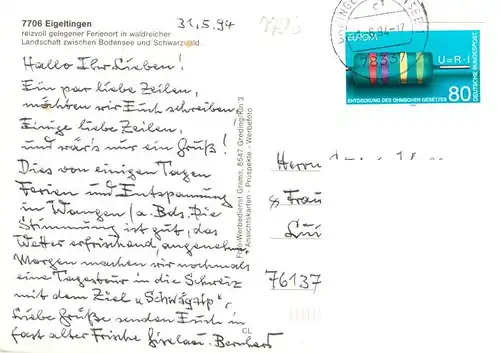 7706 Eigeltingen
reizvoll gelegener Ferienort in waldreicher
Landschaft zwischen Bodensee und Schwarzwald
31.5.94
Hallo Ihr Lieben!
Ein par liebe Zeilen,
möchten wir Euch schreiben,
Einige liebe Zeilen,
und wär's nur ein Gruß!
Dies von einigen Tagen
Ferien und Entspannung
in Wangen /a. Bds. Die
Stimmung ist gut, das
Wetter erfrischend, angenehm.
Morgen machen wir nochmals
eine Tagestour in die Schweiz
mit dem Ziel „Schwägalp".
Liebe Grüße senden Euch in
fast alter Frische Giselau. Bernhard
Foto-Werbedienst Grams, 8547 Greding/Kin 3
Ansichtskarten - Prospekte - Werbefoto
CL
EUROPA
U=R·I
ENTDECKUNG DES OHMSCHEN GESETZES
80
DEUTSCHE BUNDESPOST
78337
Herrn
& Frau
Lui
76137